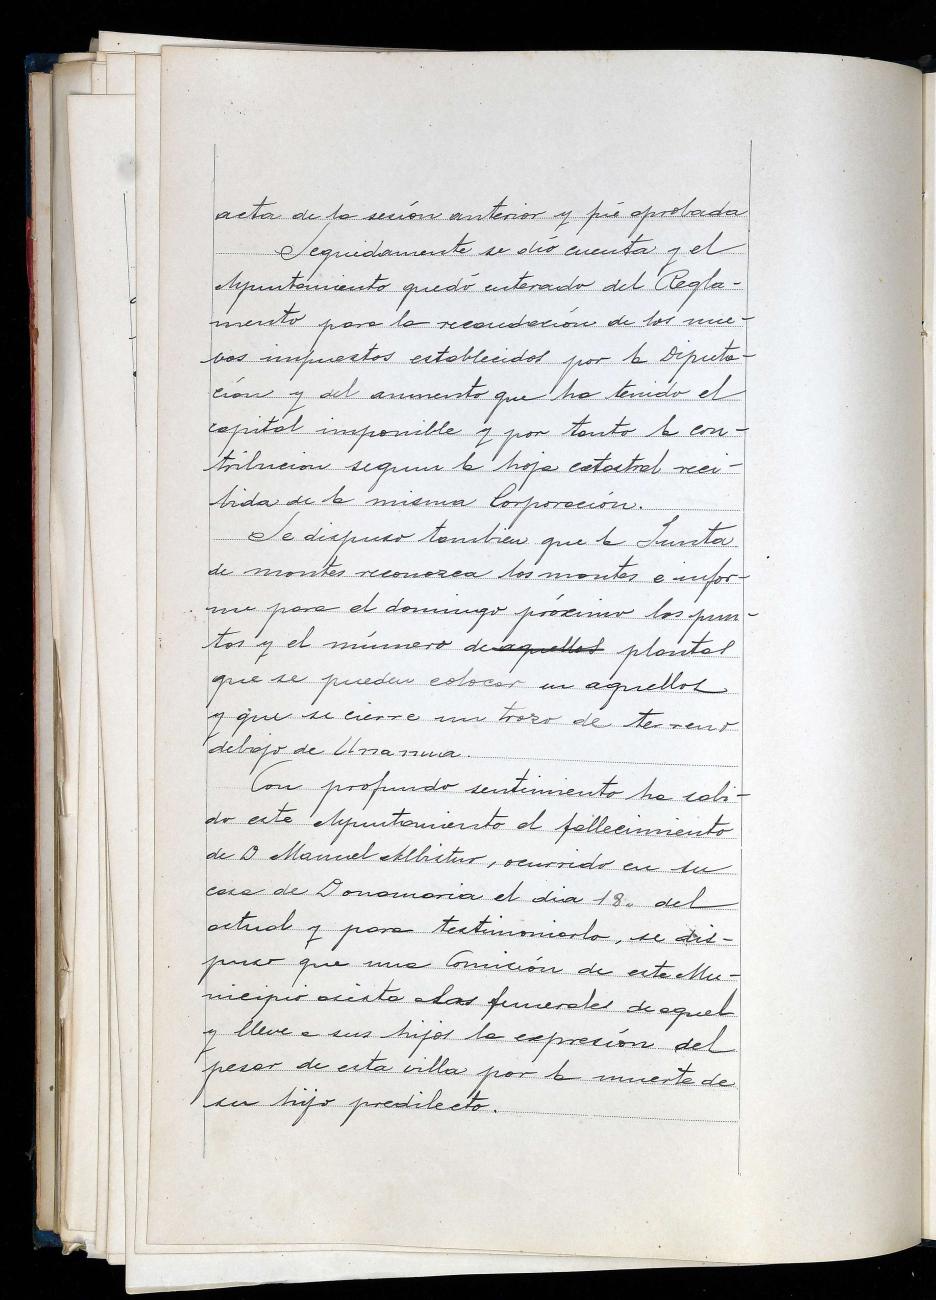 acta de la sesión anterior y fué aprobada
Seguidamente se dió cuenta y el
Ayuntamiento quedó enterado del Regla-
mento para la recaudación de los nue-
vos impuestos establecidos por la Diputa-
ción y del aumento que ha tenido el
capital imponible y por tanto la con-
tribucion segun la hoja catastral reci-
bida de la misma Corporación.
Se dispuso tambien que la Junta
de montes reconozca los montes e infor-
me para el domingo próximo los pun-
tos y el número de aquellos plantas
que se pueden colocar en aquellos
y que se cierre un trozo de terreno
debajo de Unanua.
Con profundo sentimiento ha sabi-
do este Ayuntamiento el fallecimiento
de D Manuel Albistur, ocurrido en su
casa de Donamaria el dia 18. del
actual y para testimoniarlo, se dis-
puso que una Comisión de este Mu-
nicipio asista a las funerales de aquel
y lleve a sus hijos la expresión del
pesar de esta villa por la muerte de
su hijo predilecto.